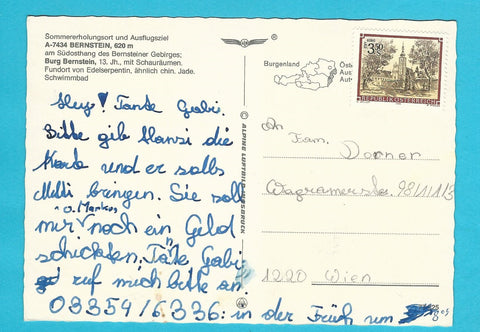 Sommererholungsort und Ausflugsziel
A-7434 BERNSTEIN, 620 m
am Südosthang des Bernsteiner Gebirges;
Burg Bernstein, 13. Jh., mit Schauräumen.
Fundort von Edelserpentin, ähnlich chin. Jade.
Schwimmbad
Hey! Tante Gabi.
Bitte gib Hansi die
Karte und er solls
Mutti bringen. Sie soll
u. Markus
mir noch ein Geld
schicken. Tante Gabi
ruf mich bitte an.
03354/6336: in der Früh um
© ALPINE LUFTBILD INNSBRUCK
Burgenland
Öst
Aus
Aut
3.50
REPUBLIK ÖSTERREICH
An
Fam.
Dorner
Wagramerstr. 98/1/1/3
1220 Wien